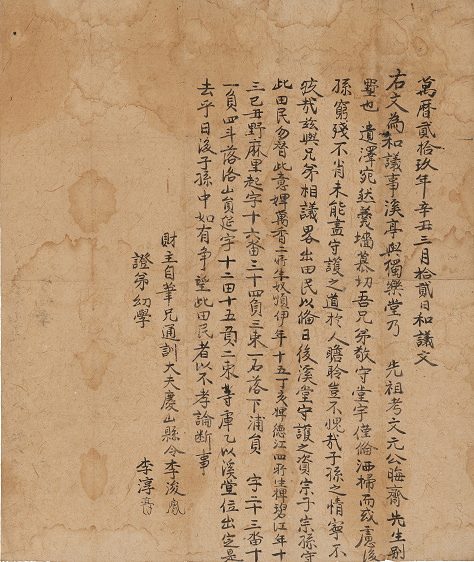 萬曆貳拾玖年辛丑三月拾貳日和議文
右文為和議事溪亭與獨樂堂乃 先祖考文元公晦齋先生別
墅也 遺澤宛然羹墻慕切吾兄弟敬守堂宇僅備洒掃而或慮後
孫窮殘不肖未能盡守護之道於人瞻聆豈不愧哉子孫之情寧不
哉玆與兄弟相議畧出田民以備日後溪堂守護之資宗子宗孫守
此田民勿替此意婢萬香二所生奴順伊年十五丁亥婢德江四所生婢碧江年十
三己丑野麻里起字十六畓三十四負三束一石落下浦員 字二十三畓十
一負四斗落洛山員延字十二田十五負二束等庫乙以溪堂位出定是
去乎日後子孫中如有爭望此田民者以不孝論斷事
財主自筆兄通訓大夫慶山縣令李浚
證弟幼學 李淳